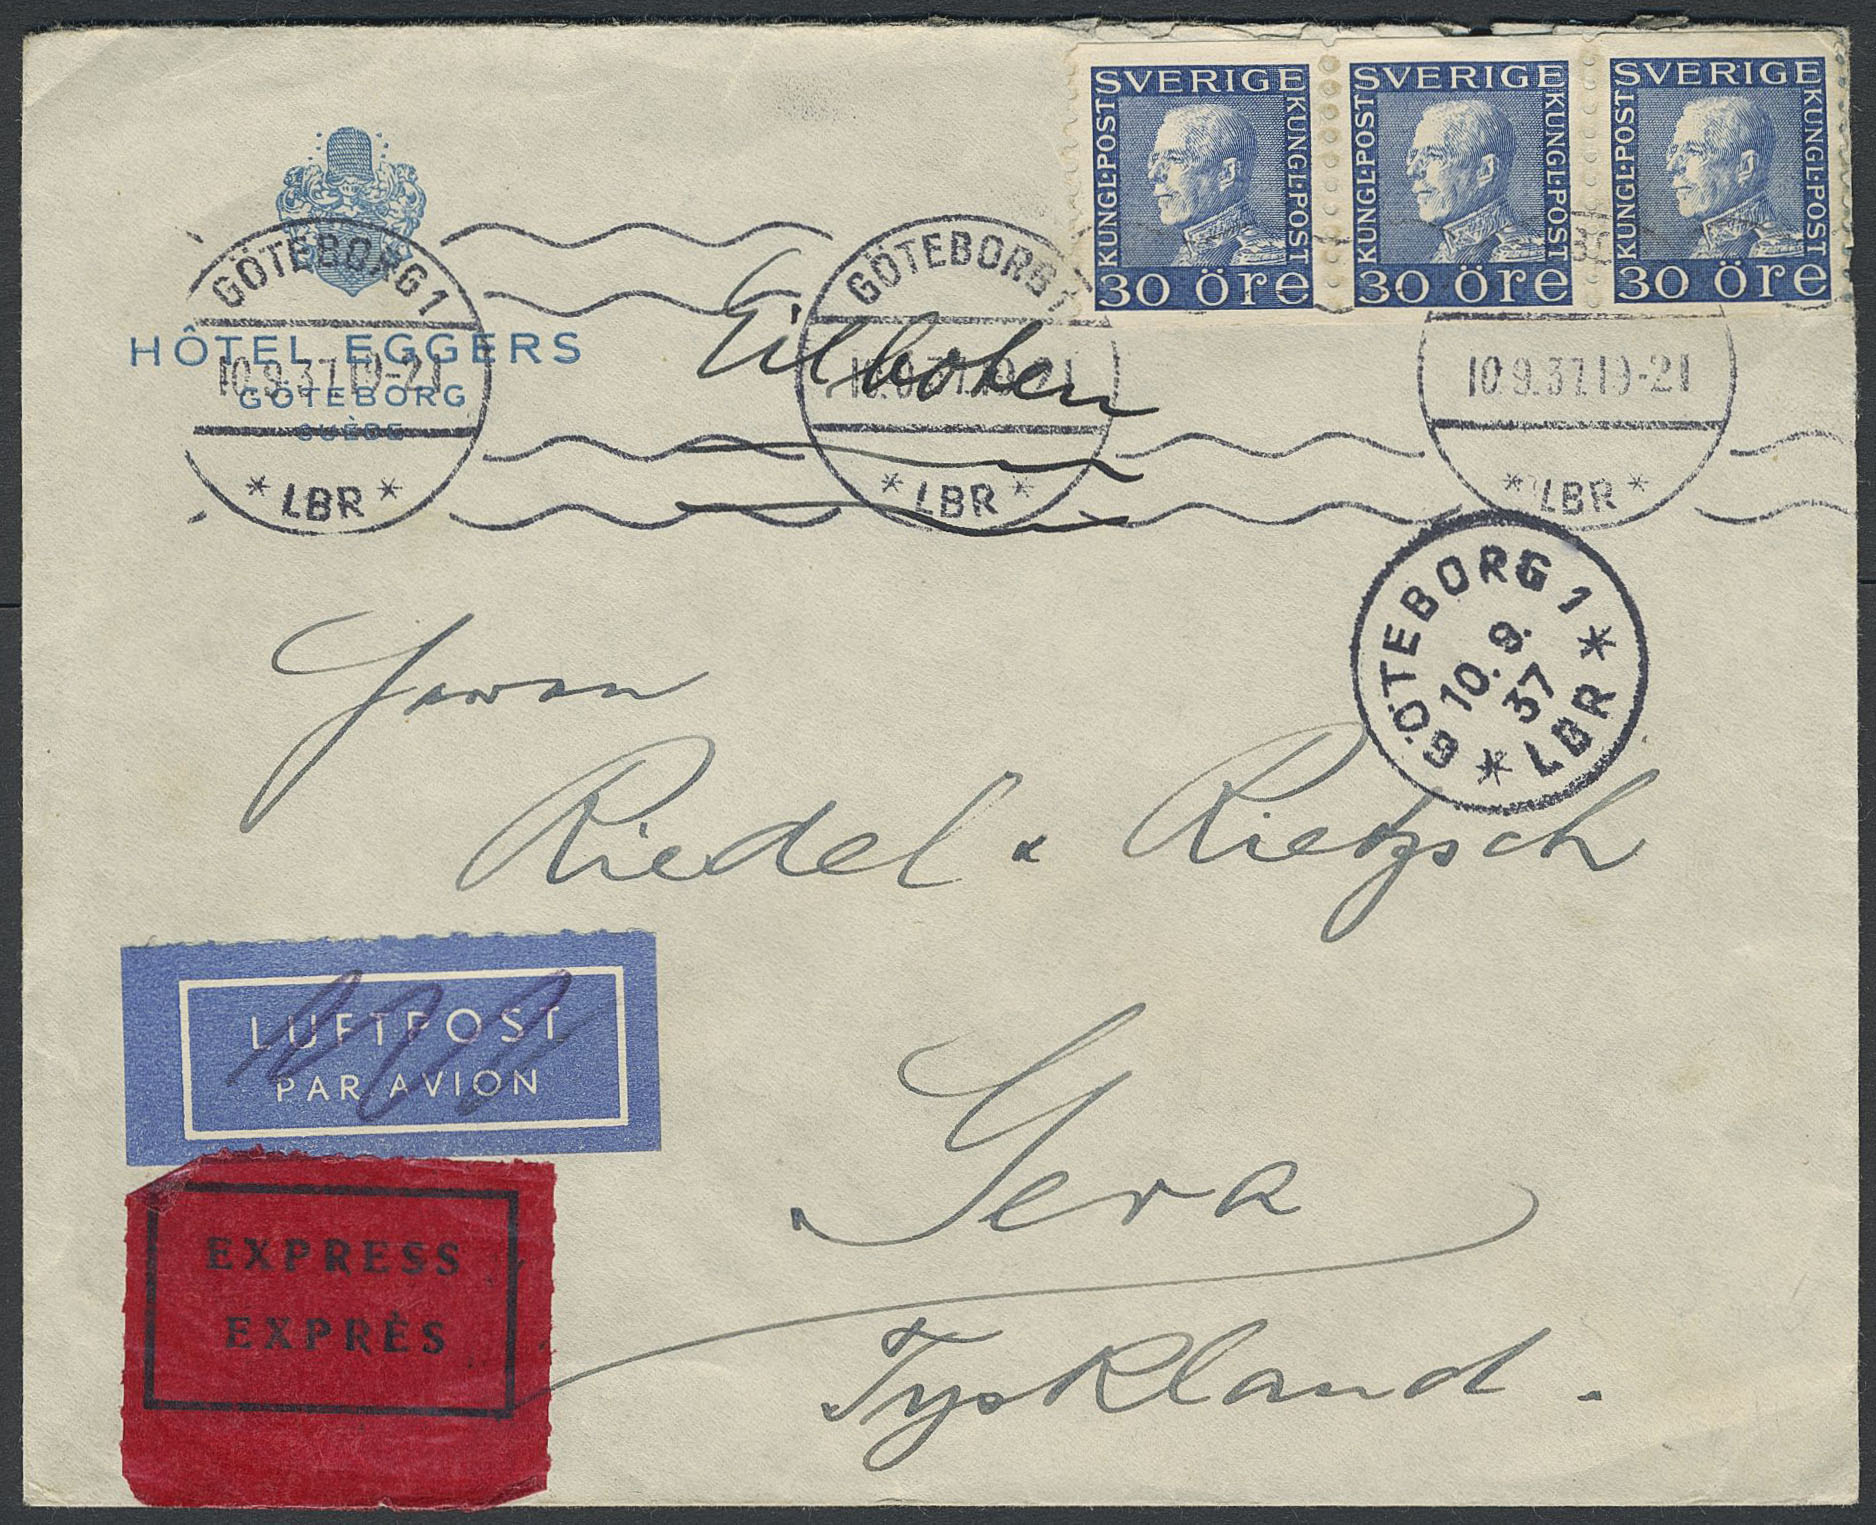 SVERIGE SVERIGE SVERIGE
KUNGL·POST KUNGL·POST KUNGL·POST KUNGL·POST KUNGL·POST KUNGL·POST
30 öre 30 öre 30 öre
GÖTEBORG 1
10.9.37.19-21
* LBR *
GÖTEBORG 1
10.9.37.19-21
* LBR *
10.9.37.19-21
* LBR *
HÔTEL EGGERS
GÖTEBORG
SUÈDE
Eilboten
GÖTEBORG 1
10. 9.
37
* LBR *
Herren
Riedel & Rietzsch
LUFTPOST
PAR AVION
Gera
EXPRESS
EXPRÈS
Tyskland.